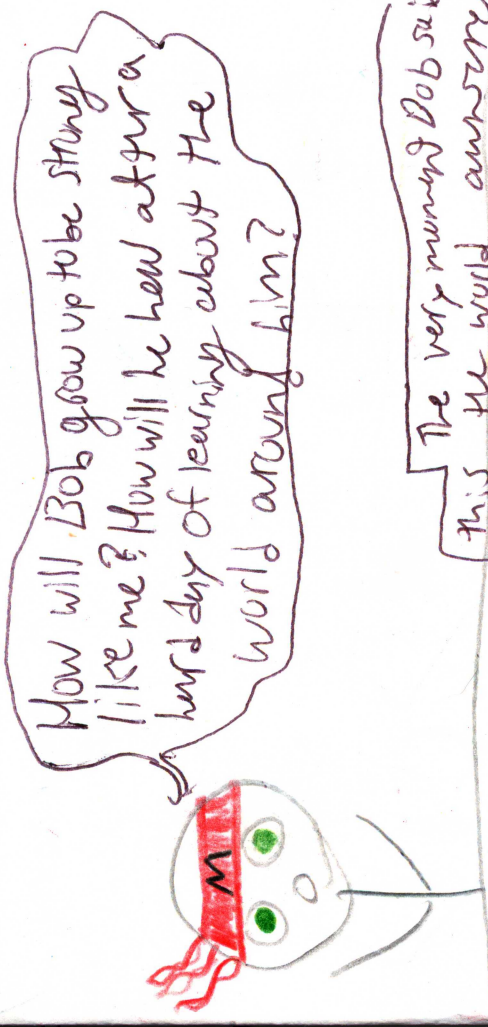 How will Bob grow up to be strong
like me? How will he heal after a
hard day of learning about the
world around him?
M
The very moment Bob sai
this the world